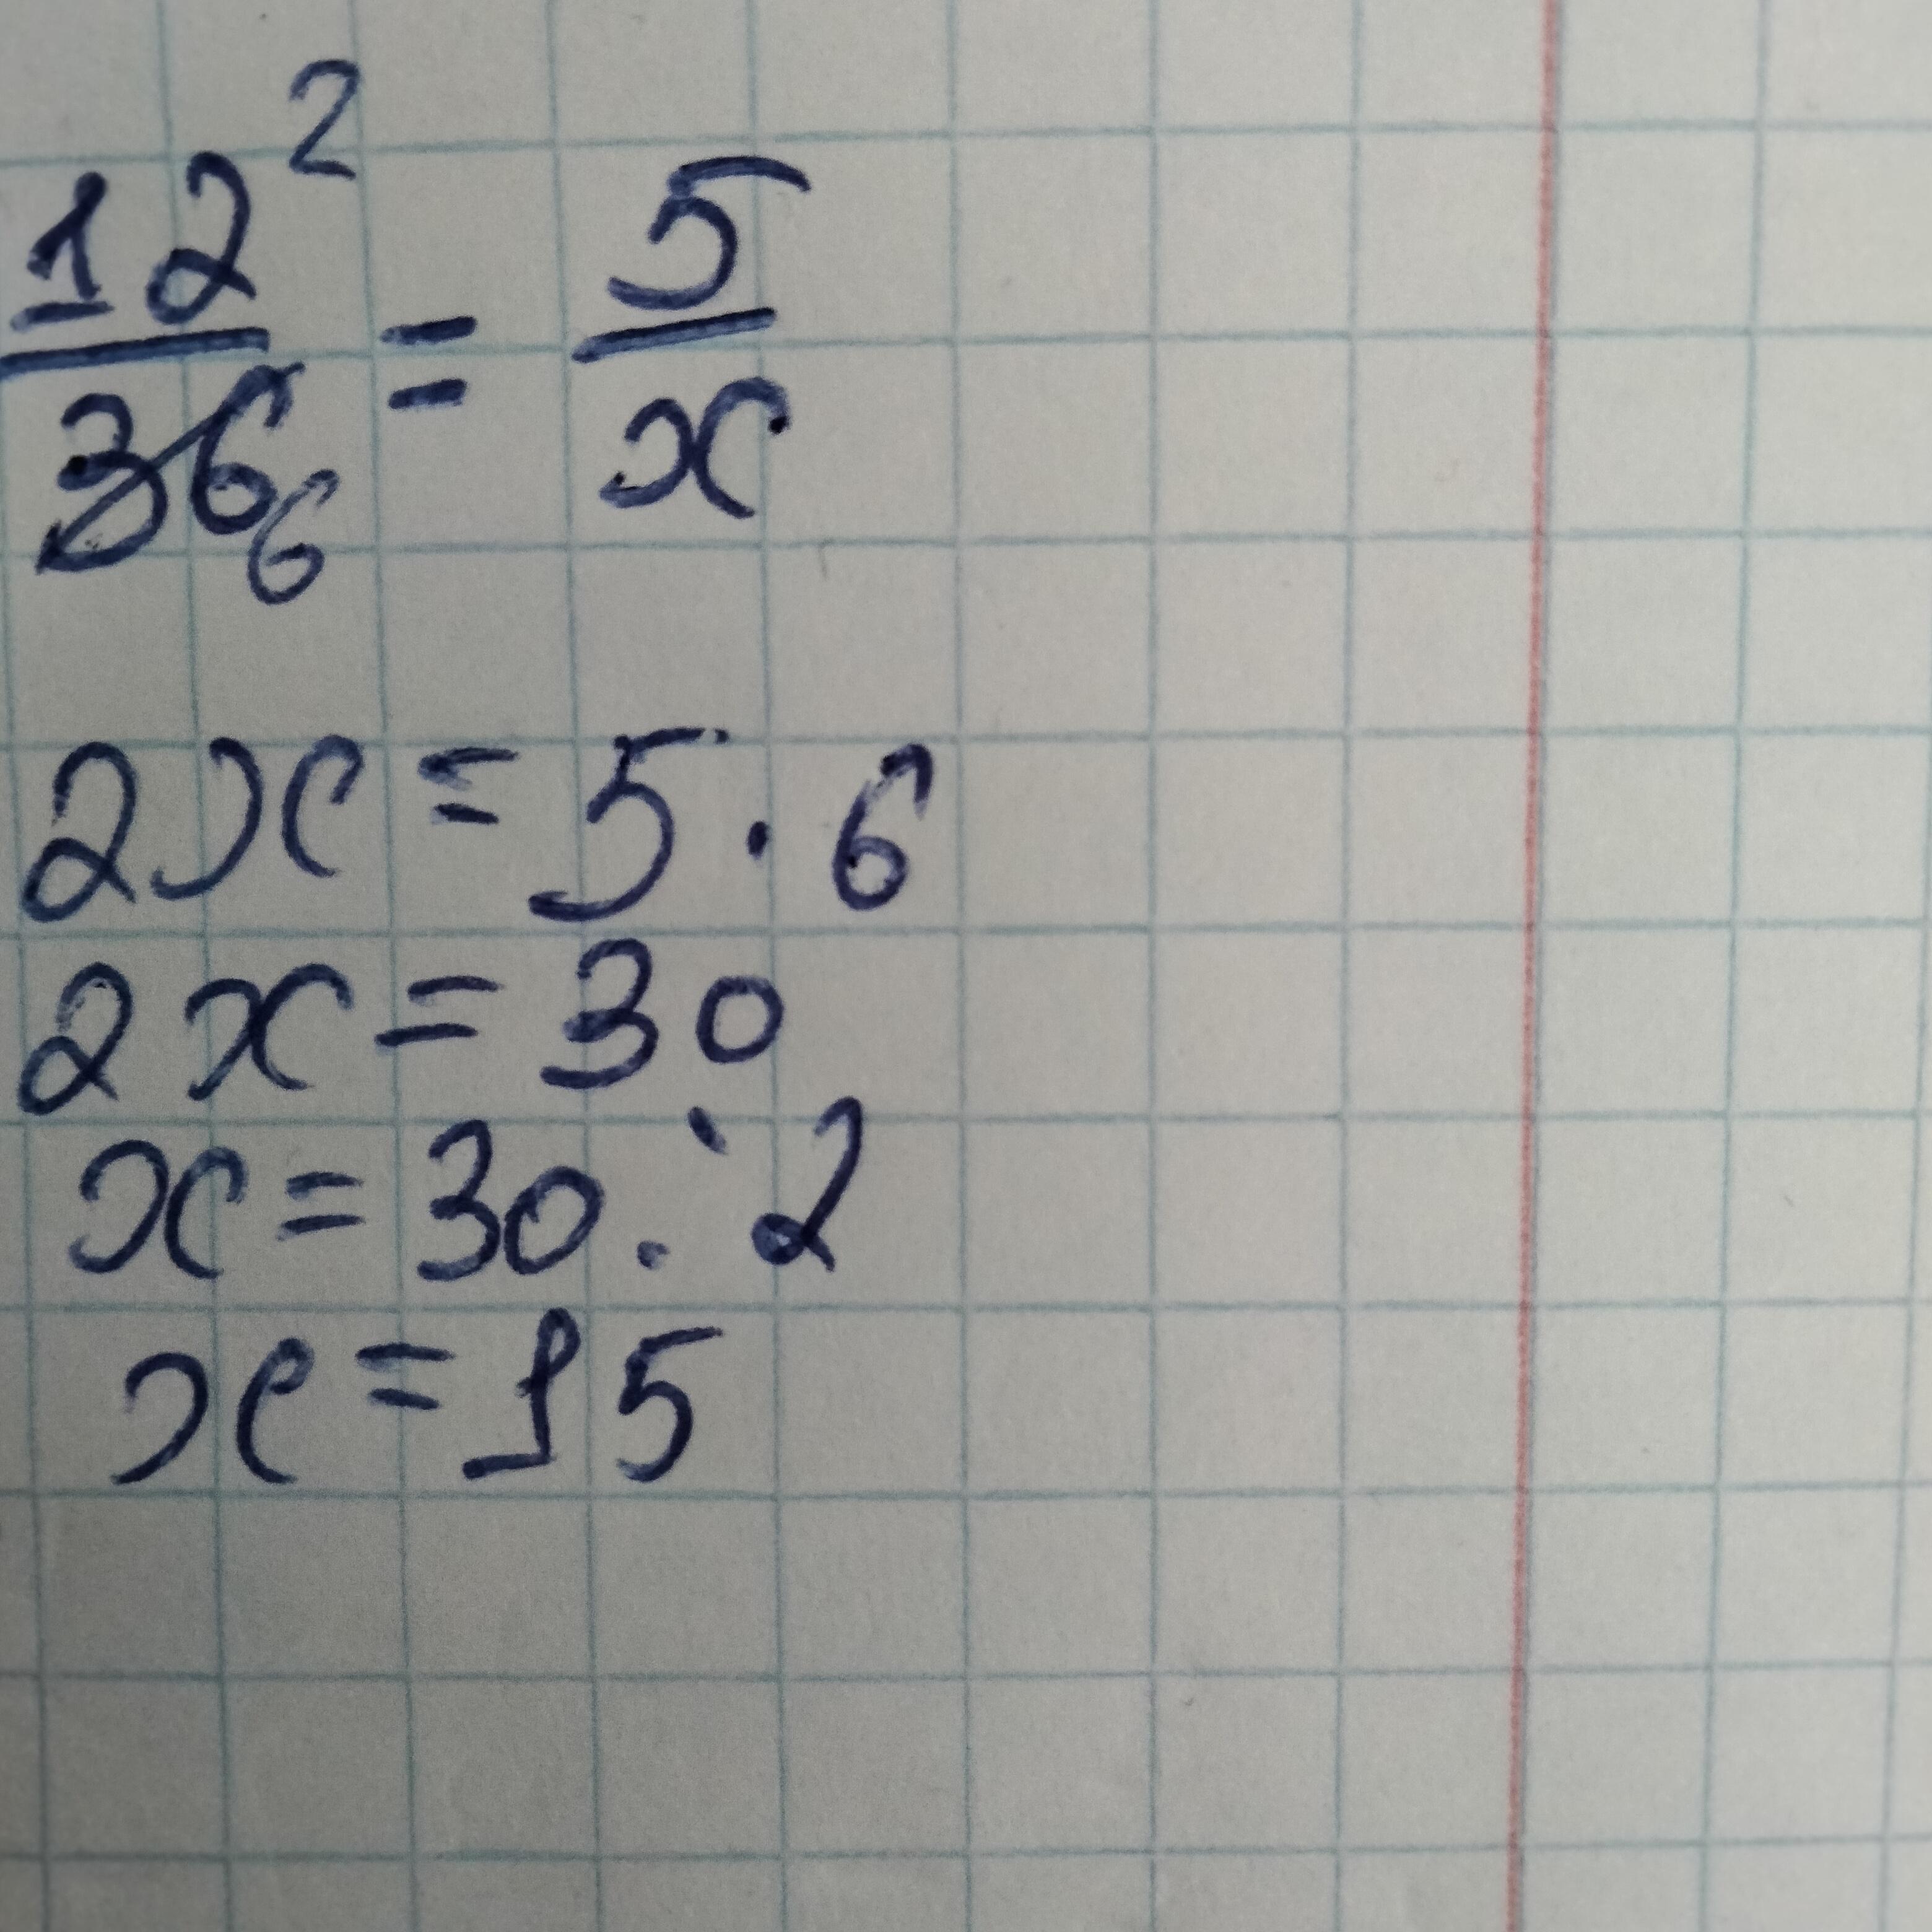 12² / 36₆ = 5 / x
2x = 5 · 6
2x = 30
x = 30 : 2
x = 15